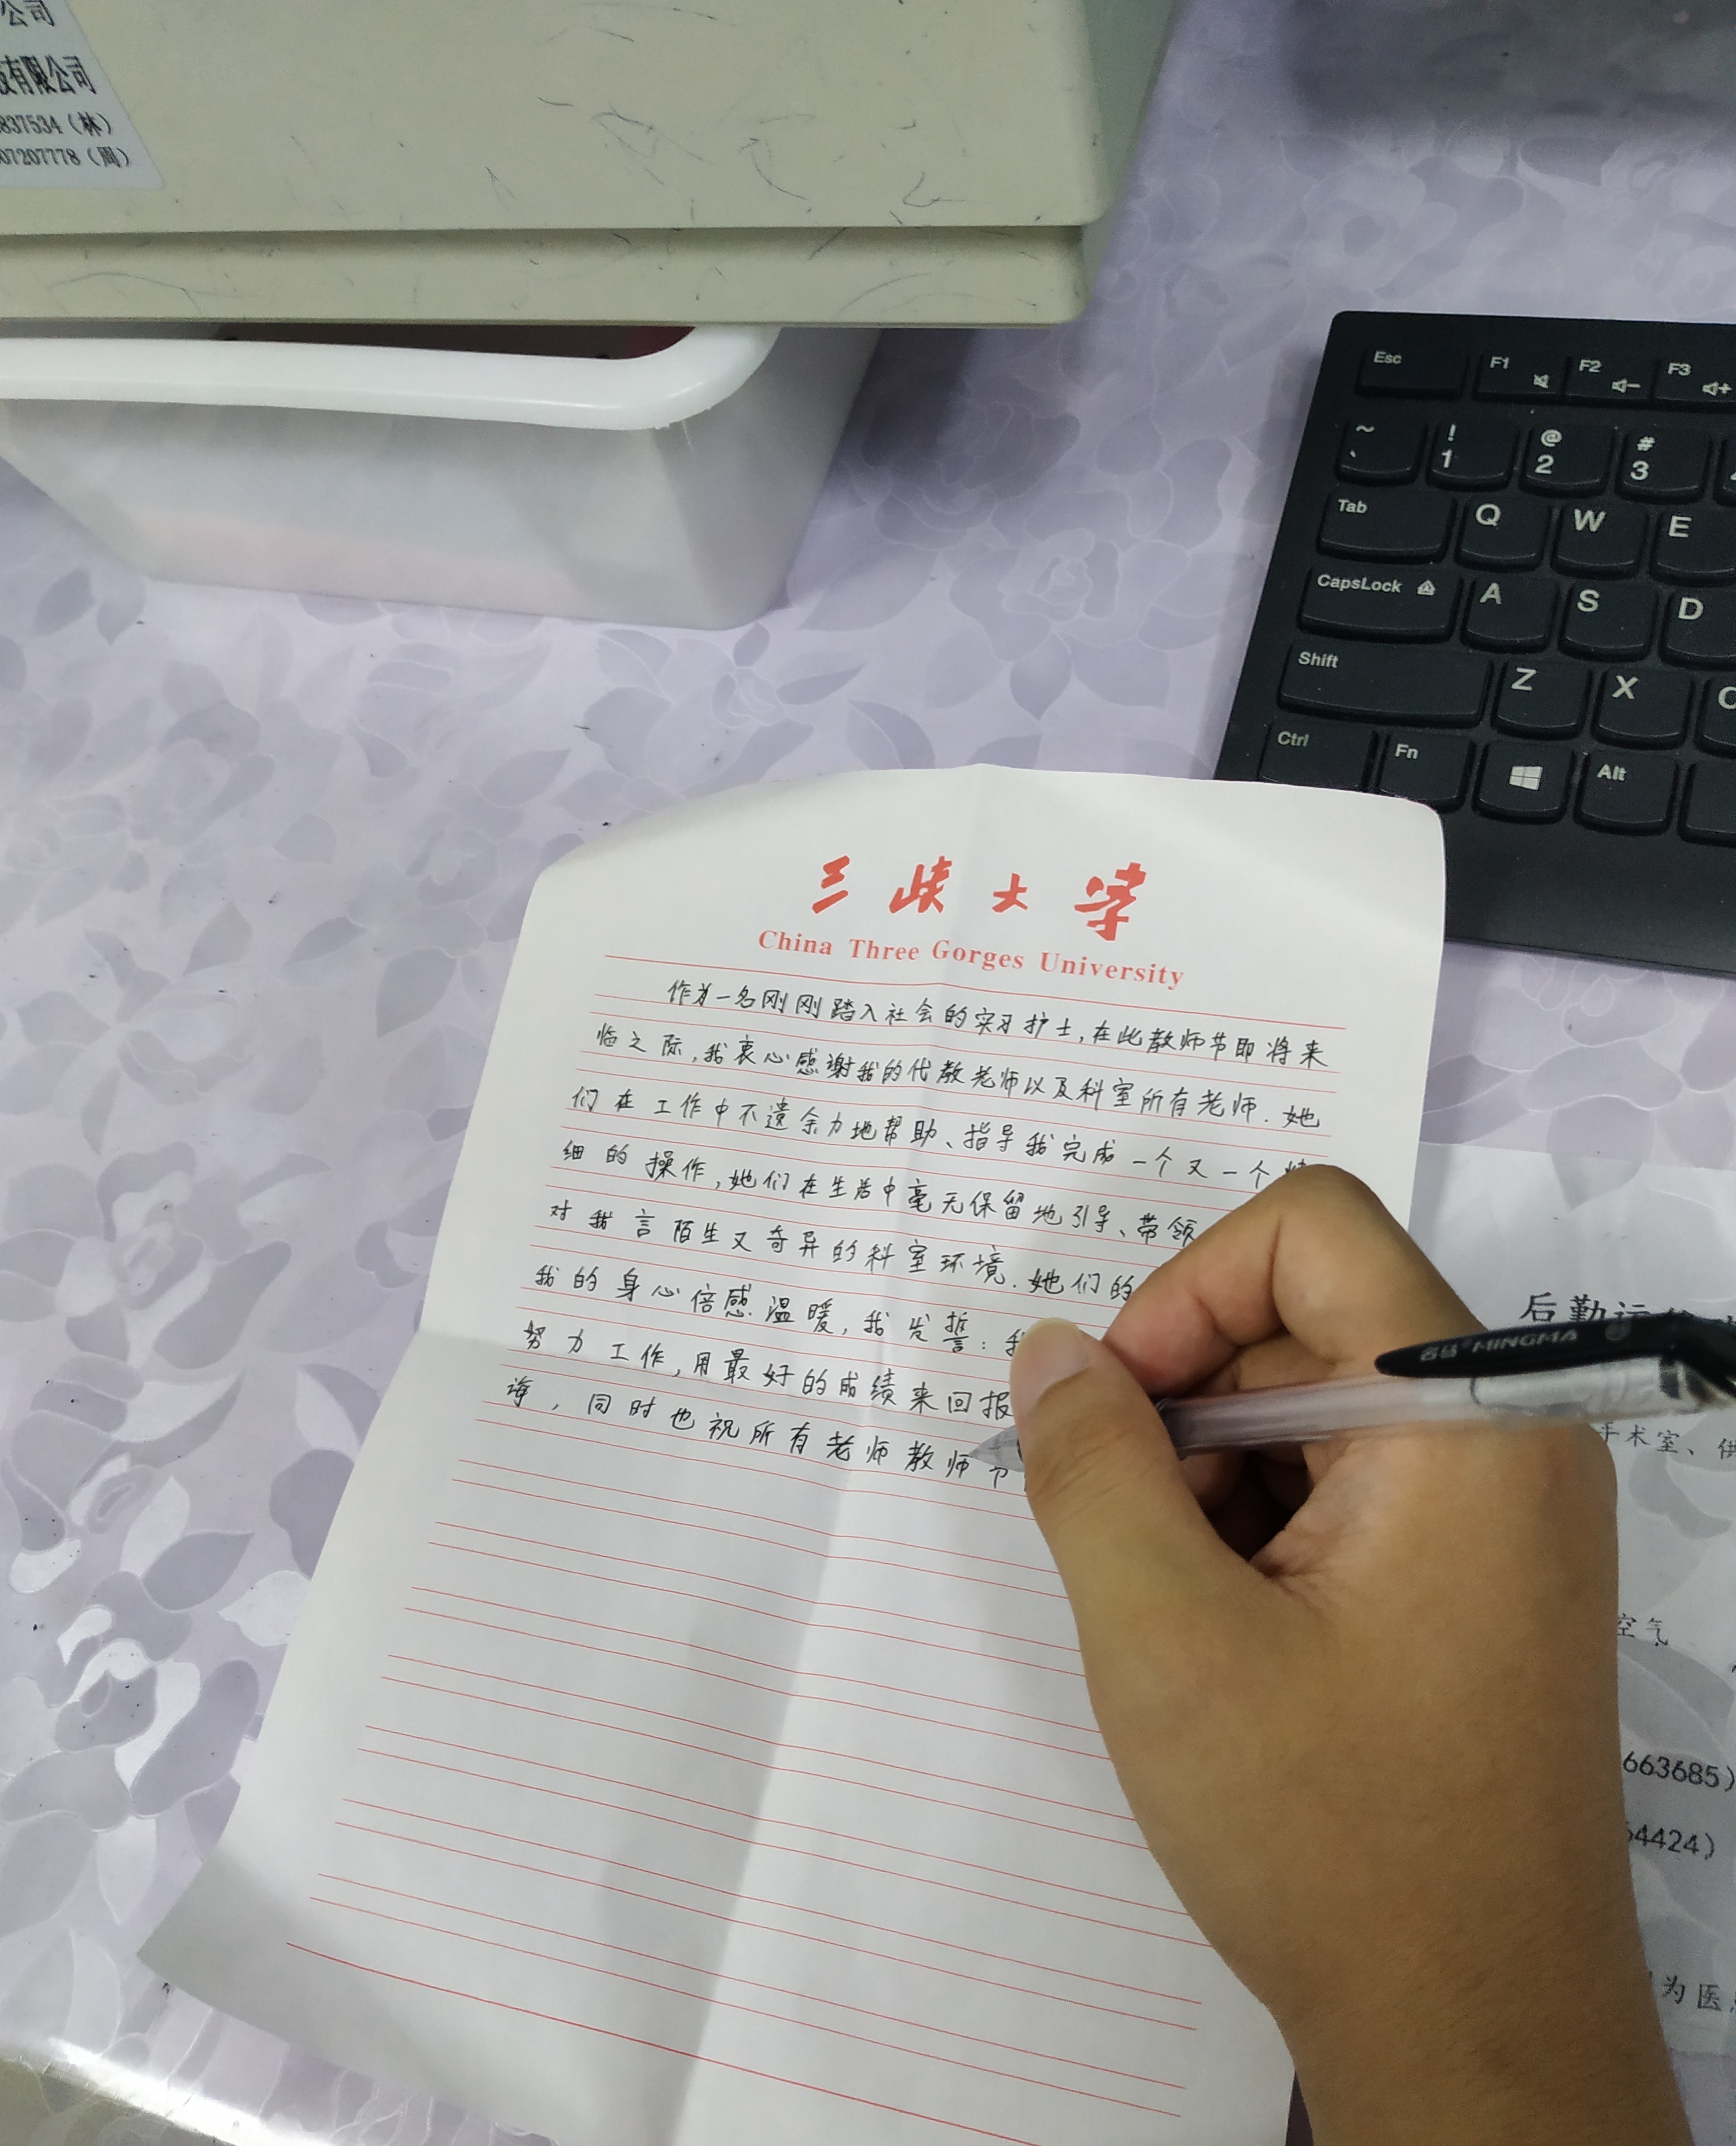 公司
技有限公司
837534（林）
07207778（周）
Esc
F1
F2
F3
~
!
1
@
2
#
3
Tab
Q
W
E
CapsLock
A
S
D
Shift
Z
X
C
Ctrl
Fn
Alt
三峡大学
China Three Gorges University
作为一名刚刚踏入社会的实习护士,在此教师节即将来
临之际,我衷心感谢我的代教老师以及科室所有老师.她
们在工作中不遗余力地帮助、指导我完成一个又一个
细的操作,她们在生活中毫无保留地引导、带领
对我言陌生又奇异的科室环境.她们的
我的身心倍感温暖,我发誓:我
努力工作,用最好的成绩来回报
诲,同时也祝所有老师教师节
名马 MINGMA
后勤运
手术室、供
空气
663685)
64424)
为医